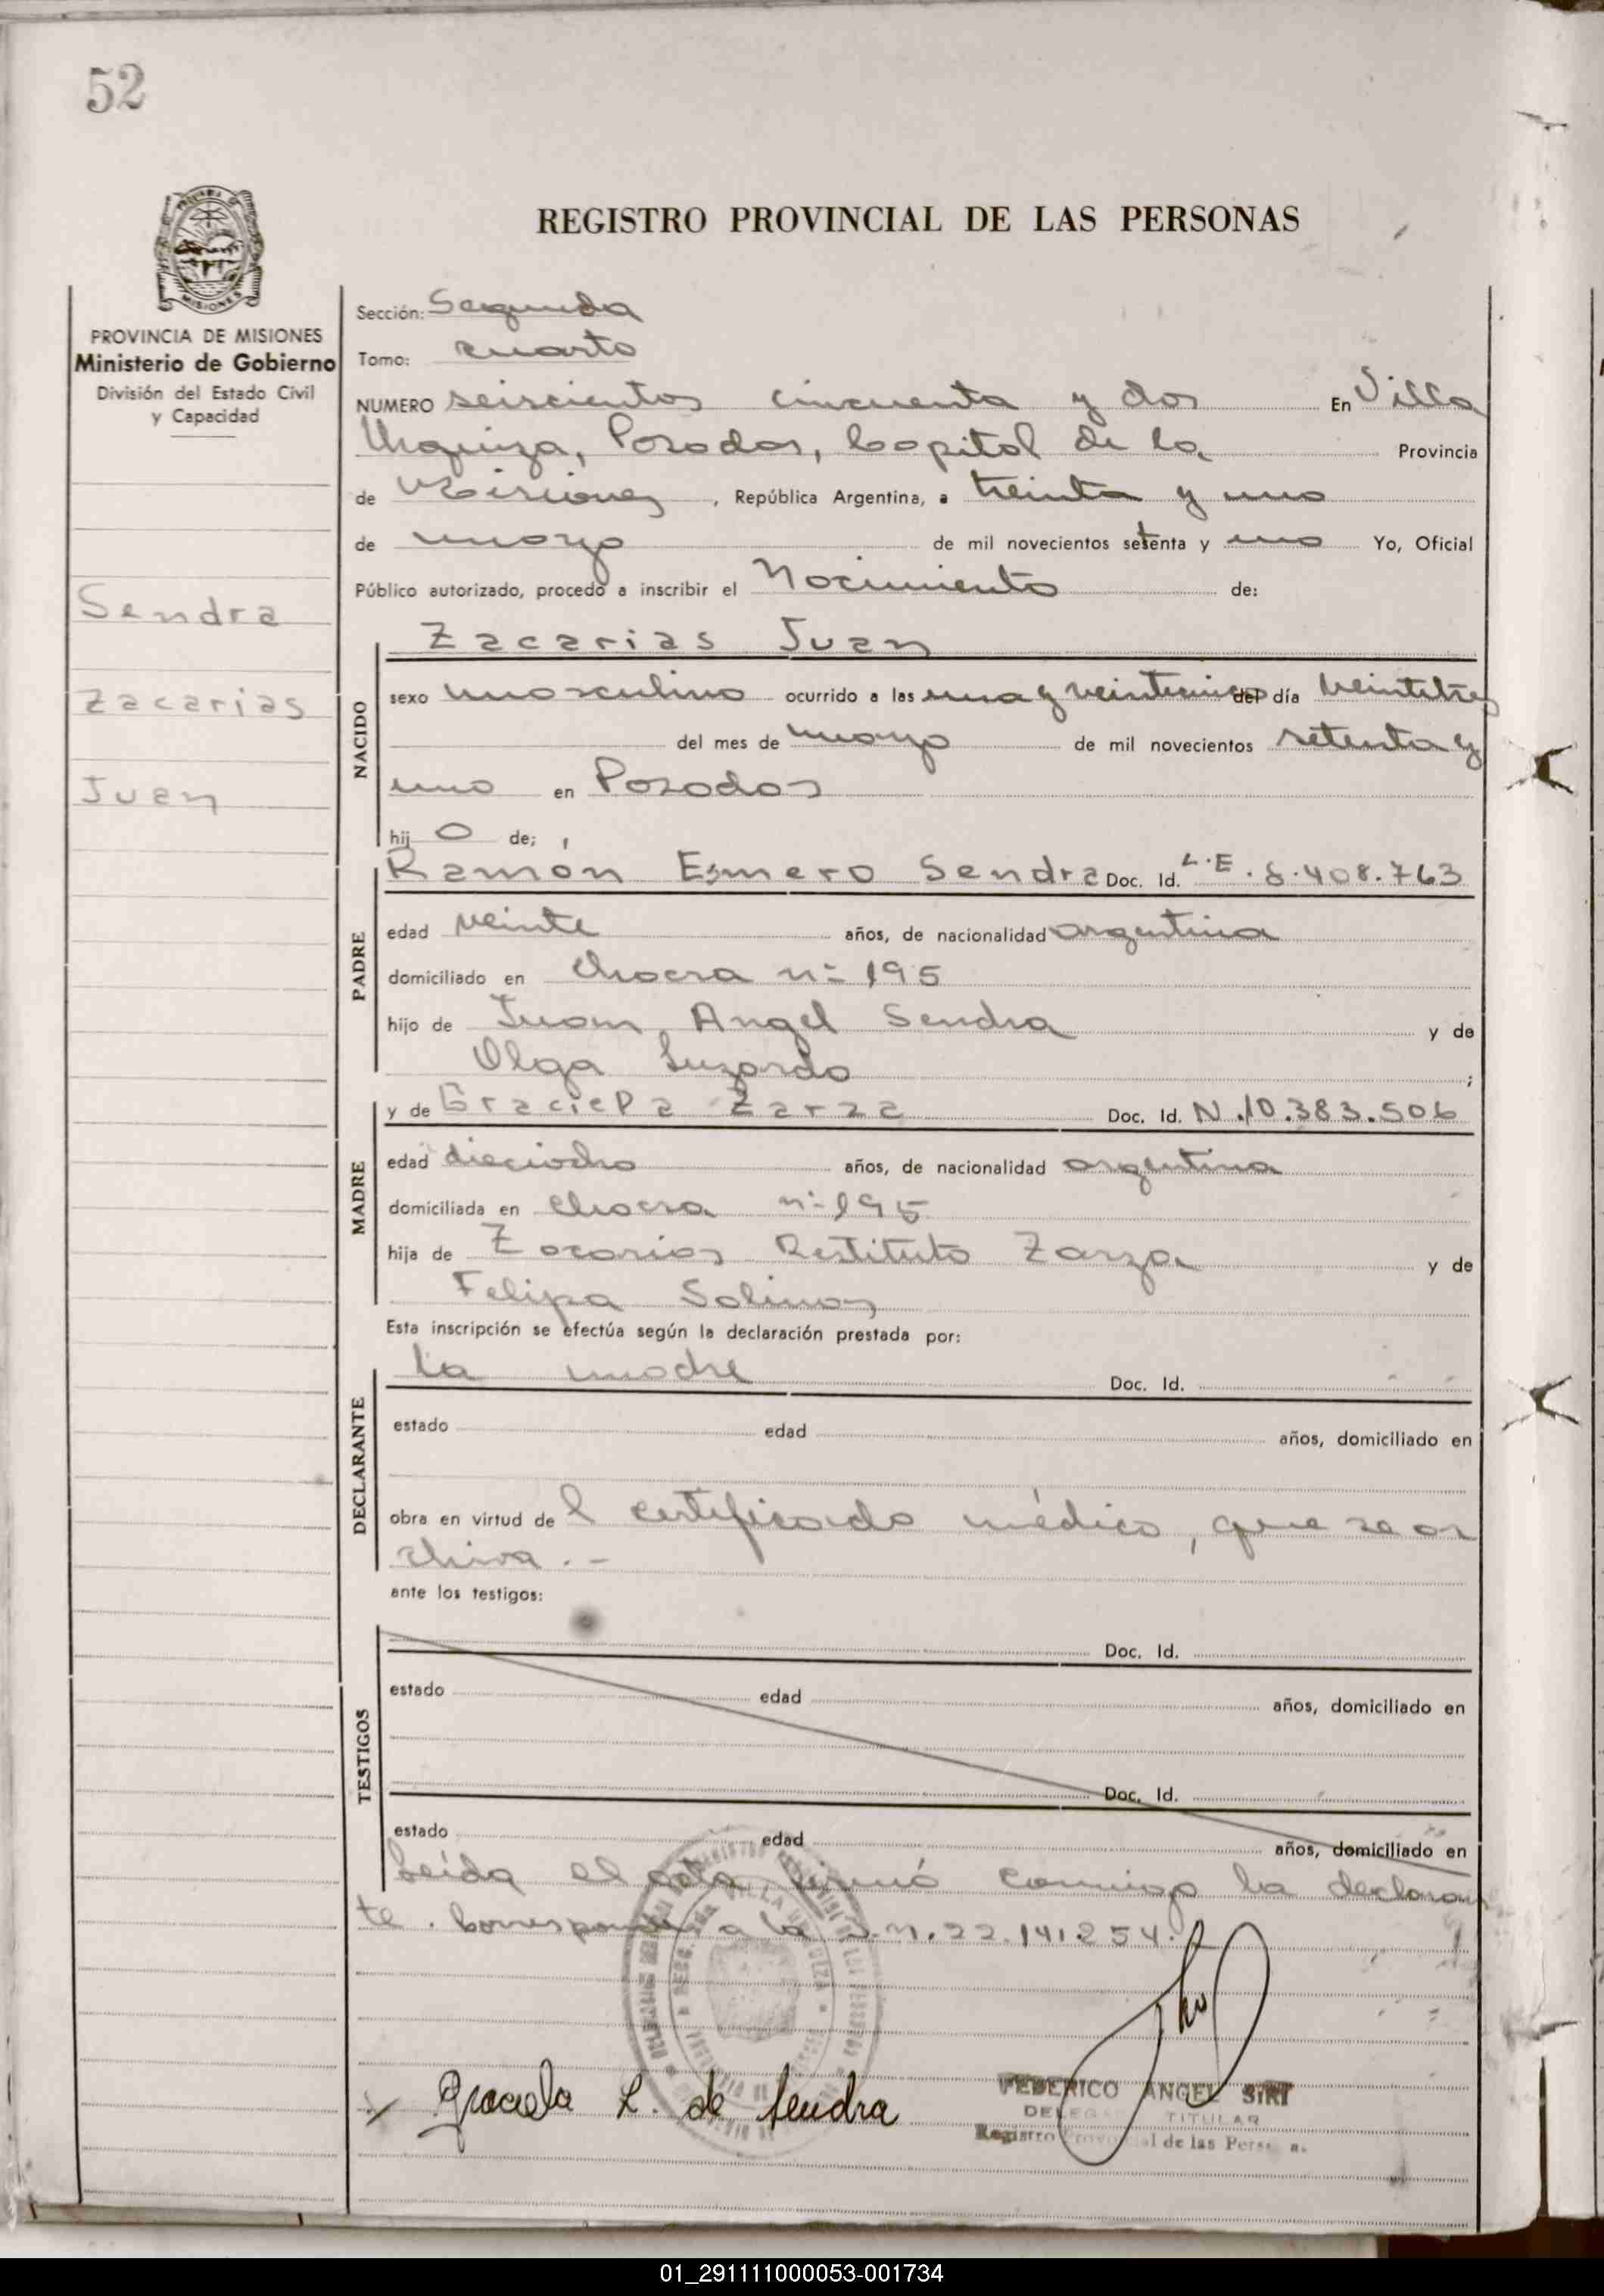 52
MISIONES
PROVINCIA DE MISIONES
Ministerio de Gobierno
División del Estado Civil
y Capacidad
Sendra
Zacarias
Juan
REGISTRO PROVINCIAL DE LAS PERSONAS
Sección: Segunda
Tomo: cuarto
NUMERO seiscientos cincuenta y dos En Villa
Urquiza, Posadas, Capital de la Provincia
de Misiones, República Argentina, a treinta y uno
de mayo de mil novecientos setenta y uno Yo, Oficial
Público autorizado, procedo a inscribir el Nacimiento de:
Zacarias Juan
NACIDO
sexo masculino ocurrido a las una y veinticinco del día veintitres
del mes de mayo de mil novecientos setenta y
uno en Posadas
hijo de;
PADRE
Ramón Esmero Sendra Doc. Id. L.E. 8.408.763
edad veinte años, de nacionalidad argentina
domiciliado en chacra nº 195
hijo de Juan Angel Sendra y de
Olga Luzardo ;
MADRE
y de Graciela Zarza Doc. Id. N.10.383.506
edad dieciocho años, de nacionalidad argentina
domiciliada en chacra nº 195
hija de Zacarias Restituto Zarza y de
Felipa Salinas
Esta inscripción se efectúa según la declaración prestada por:
DECLARANTE
la madre Doc. Id.
estado edad años, domiciliado en
obra en virtud del certificado médico, que se ar
chiva.-
ante los testigos:
TESTIGOS
Doc. Id.
estado edad años, domiciliado en
Doc. Id.
estado edad años, domiciliado en
Leída el acta firmó conmigo la declaran
te. Corresponde a la D.N.22.141.254.
Graciela Z. de Sendra
FEDERICO ANGEL SIRI
DELEGADO TITULAR
Registro Provincial de las Personas
01_291111000053-001734